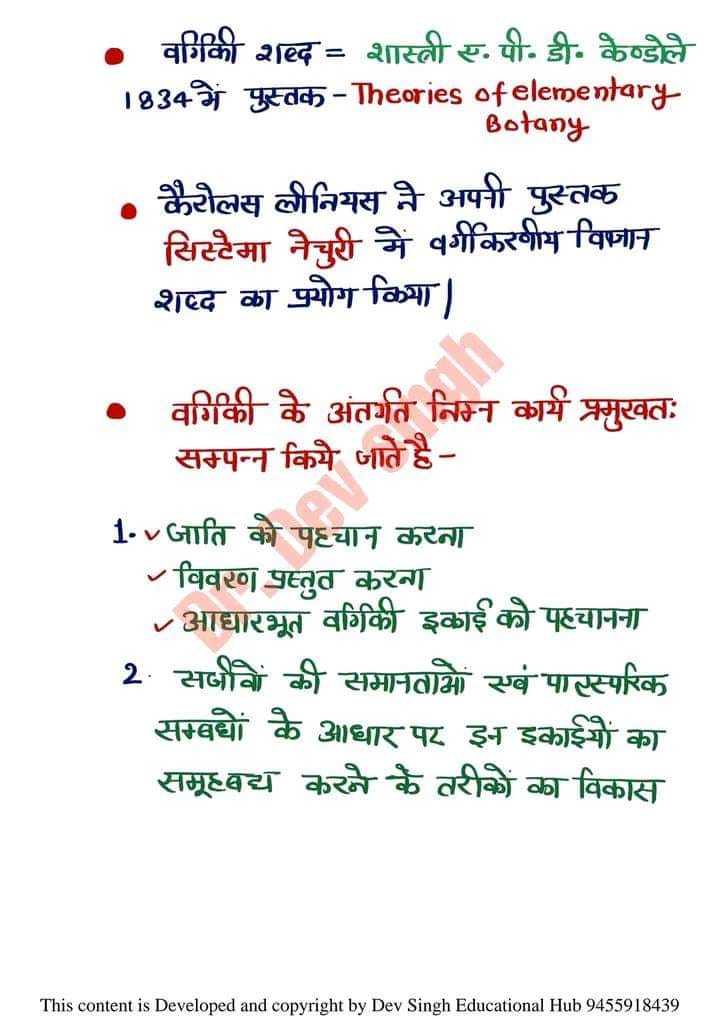 • वर्गिकी शब्द = शास्त्री ए. पी. डी. केण्डोले
1834 में पुस्तक - Theories of elementary
Botany
• कैरोलस लीनियस ने अपनी पुस्तक
सिस्टेमा नेचुरी में वर्गीकरणीय विज्ञान
शब्द का प्रयोग किया |
• वर्गिकी के अंतर्गत निम्न कार्य प्रमुखतः
सम्पन्न किये जाते है -
1. ✓ जाति को पहचान करना
✓ विवरण प्रस्तुत करना
✓ आधारभूत वर्गिकी इकाई को पहचानना
2. सजीवों की समानताओं एवं पारस्परिक
सम्बधों के आधार पर इन इकाईयों का
समूहबद्य करने के तरीकों का विकास
Dr. Dev Singh
This content is Developed and copyright by Dev Singh Educational Hub 9455918439